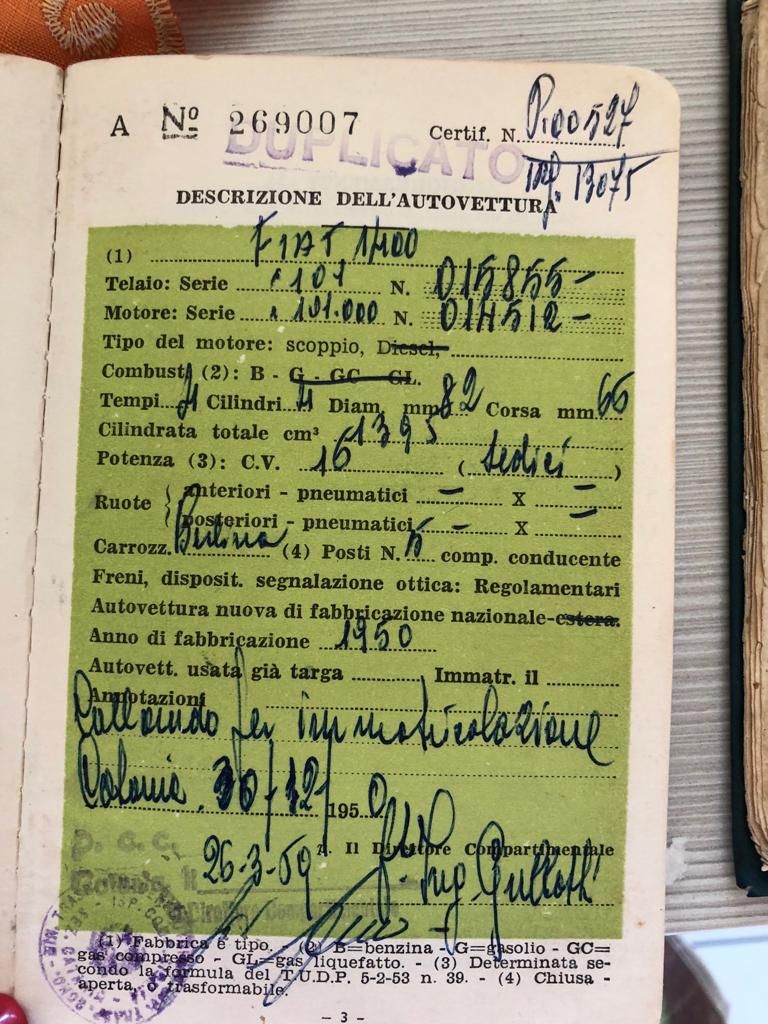 A Nº 269007 Certif. N. P.00527
DUPLICATO
DESCRIZIONE DELL'AUTOVETTURA
(1) FIAT 1400
Telaio: Serie 101 N. 015855-
Motore: Serie 101.000 N. 014512-
Tipo del motore: scoppio, Diesel,
Combust. (2): B - G - GC - GL.
Tempi 4 Cilindri 4 Diam. mm 82 Corsa mm 66
Cilindrata totale cm³ 1395
Potenza (3): C.V. 16 (sedici)
Ruote { anteriori - pneumatici - X -
posteriori - pneumatici - X -
Carrozz. Berlina (4) Posti N. 5 comp. conducente
Freni, disposit. segnalazione ottica: Regolamentari
Autovettura nuova di fabbricazione nazionale-estera.
Anno di fabbricazione 1950
Autovett. usata già targa Immatr. il
Annotazioni
Collaudo per immatricolazione
30/12/ 1950
26-3-59 Il Direttore Compartimentale
p. c. c.
f.to Ing.
(1) Fabbrica e tipo. - (2) B=benzina - G=gasolio - GC=
gas compresso - GL=gas liquefatto. - (3) Determinata se-
condo la formula del T.U.D.P. 5-2-53 n. 39. - (4) Chiusa -
aperta, o trasformabile.
- 3 -